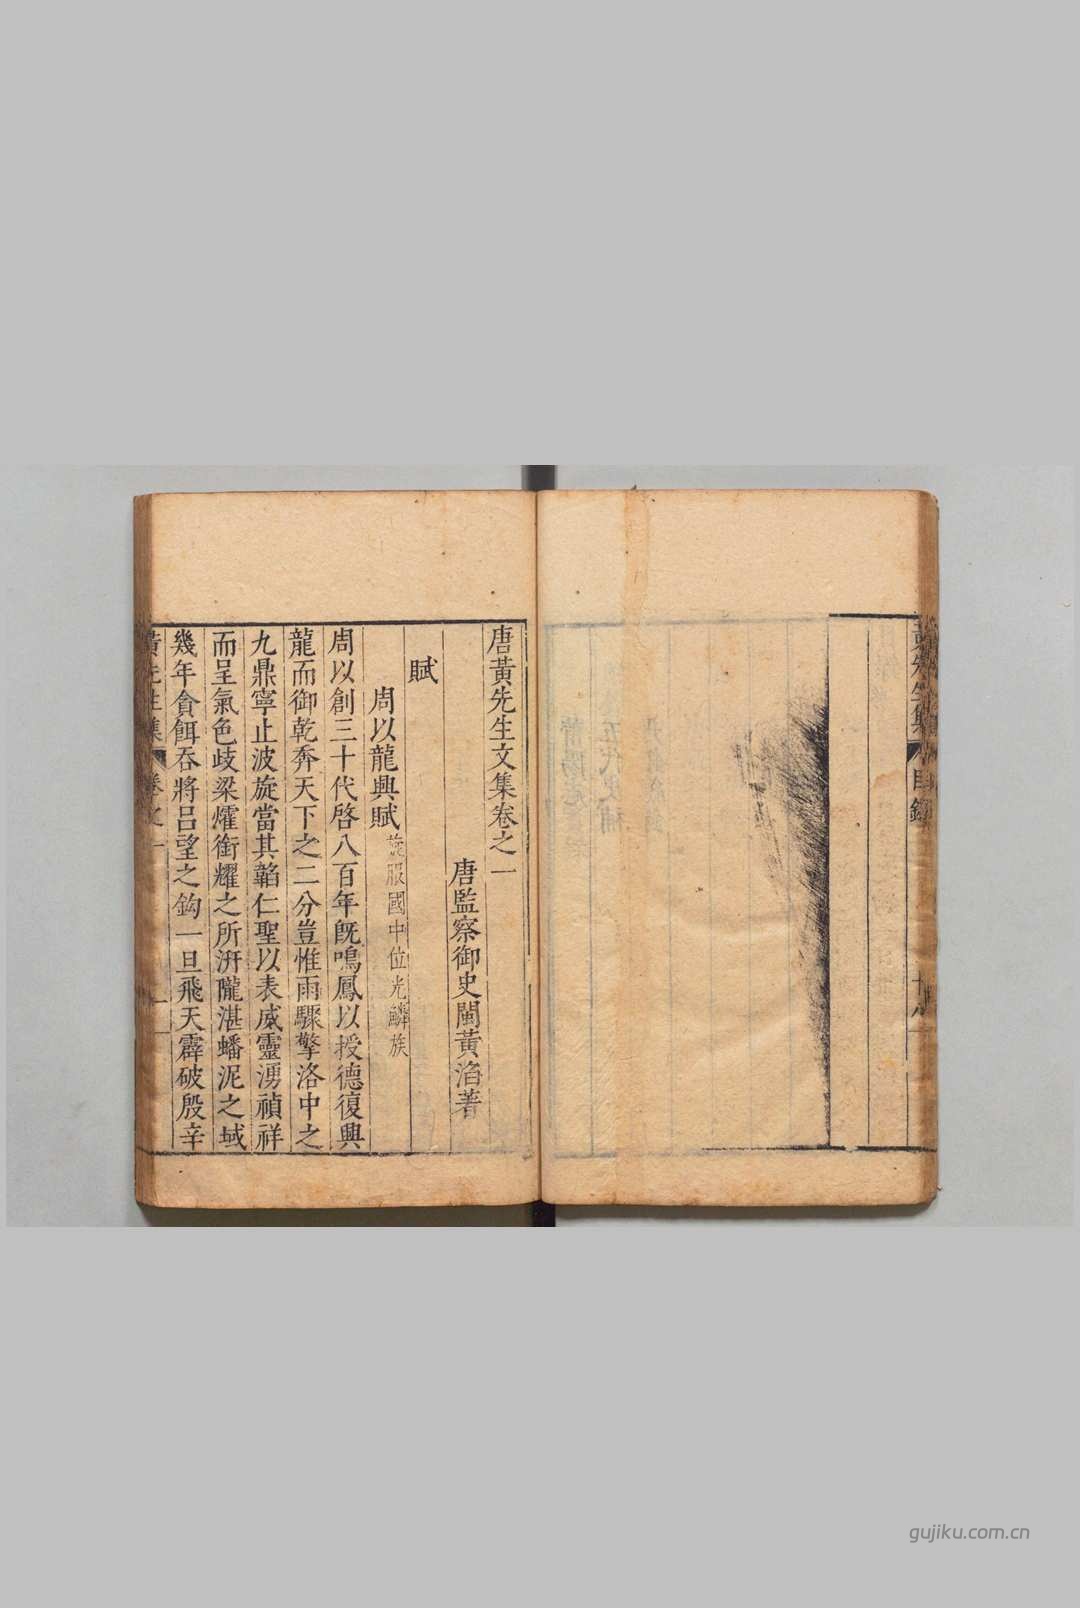 黃先生集
目錄
唐黃先生文集卷之一
唐監察御史閩黃滔著
賦
周以龍興賦
服國中位光鱗族
周以創三十代啓八百年旣鳴鳳以授德復興
龍而御乾奔天下之二分豈惟雨驟擎洛中之
九鼎寧止波旋當其韜仁聖以表威靈湧禎祥
而呈氣色歧梁爟銜耀之所汧隴湛蟠泥之域
幾年貪餌吞將呂望之鈎一旦飛天霹破殷辛
黃先生集
卷之一
一
gujiku.com.cn